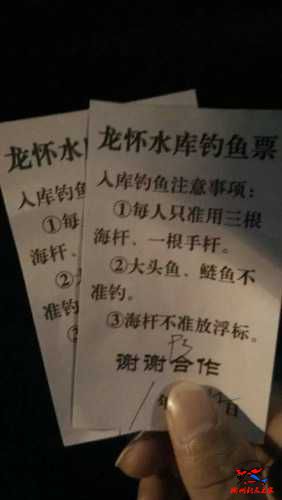 龙怀水库钓鱼票
入库钓鱼注意事项：
①每人只准用三根
海杆、一根手杆。
②大头鱼、鲢鱼不
准钓。
③海杆不准放浮标。
谢谢合作
年
日
龙怀水库
入库钓
①每
海杆、
②
准钓